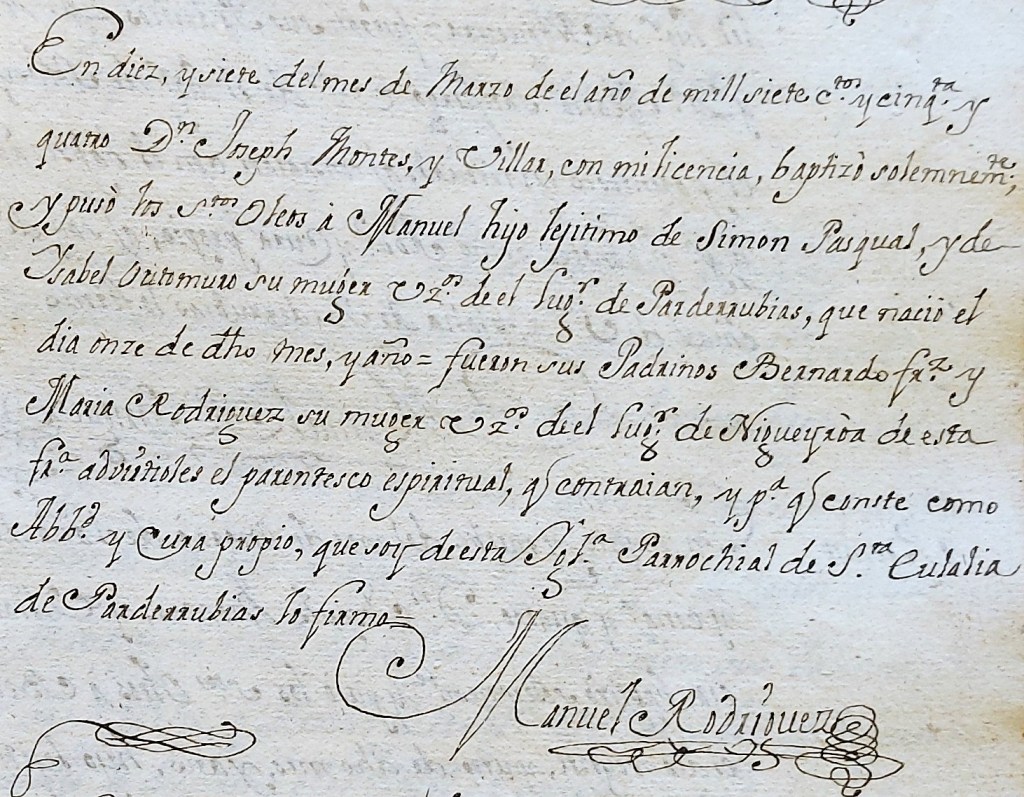 En diez, y siete del mes de Marzo de el año de mill siete c.tos y cinq.ta y
quatro D.n Joseph Montes, y Villar, con mi licencia, baptizò solemnem.te;
y pusò los s.tos Oleos à Manuel hijo lejitimo de Simon Pasqual, y de
Ysabel Outomuro su muger V.zos de el lug.r de Parderrubias, que naciò el
dia onze de dho mes, y año = fueron sus Padrinos Bernardo fr.z y
Maria Rodriguez su muger V.zos de el lug.r de Nigueyròa de esta
fr.a advirtioles el parentesco espiritual, q contraian, y p.a q conste como
Abb.d y Cura propio, que soy de esta Ygl.a Parrochial de S.ta Eulalia
de Parderrubias lo firmo =
Manuel Rodriguez